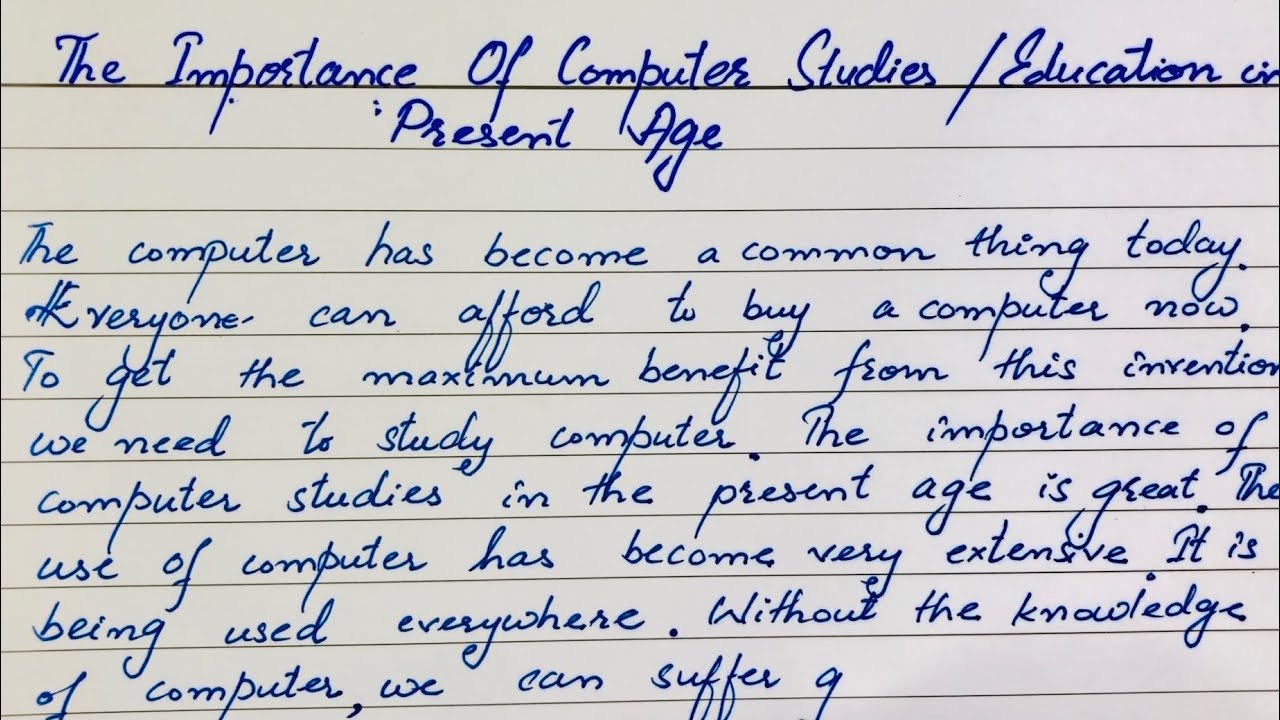 The Importance Of Computer Studies / Education in
Present Age
The computer has become a common thing today.
Everyone can afford to buy a computer now.
To get the maximum benefit from this invention
we need to study computer. The importance of
computer studies in the present age is great. The
use of computer has become very extensive. It is
being used everywhere. Without the knowledge
of computer, we can suffer g